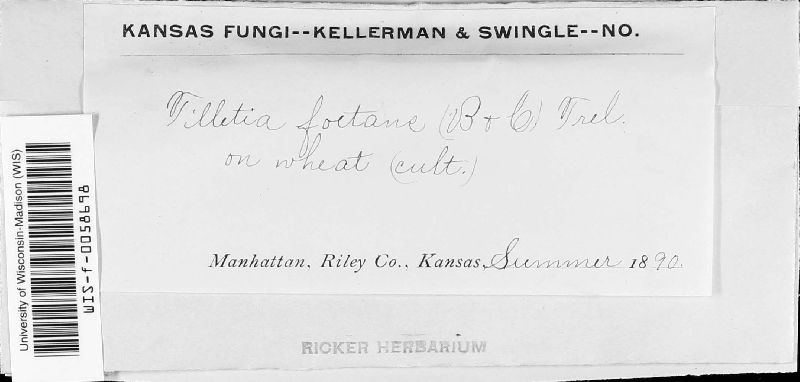 KANSAS FUNGI--KELLERMAN & SWINGLE--NO.
Tilletia foetans (B & C) Trel.
on wheat (cult.)
Manhattan, Riley Co., Kansas, Summer 1890.
RICKER HERBARIUM
University of Wisconsin-Madison (WIS)
WIS-f-0058698